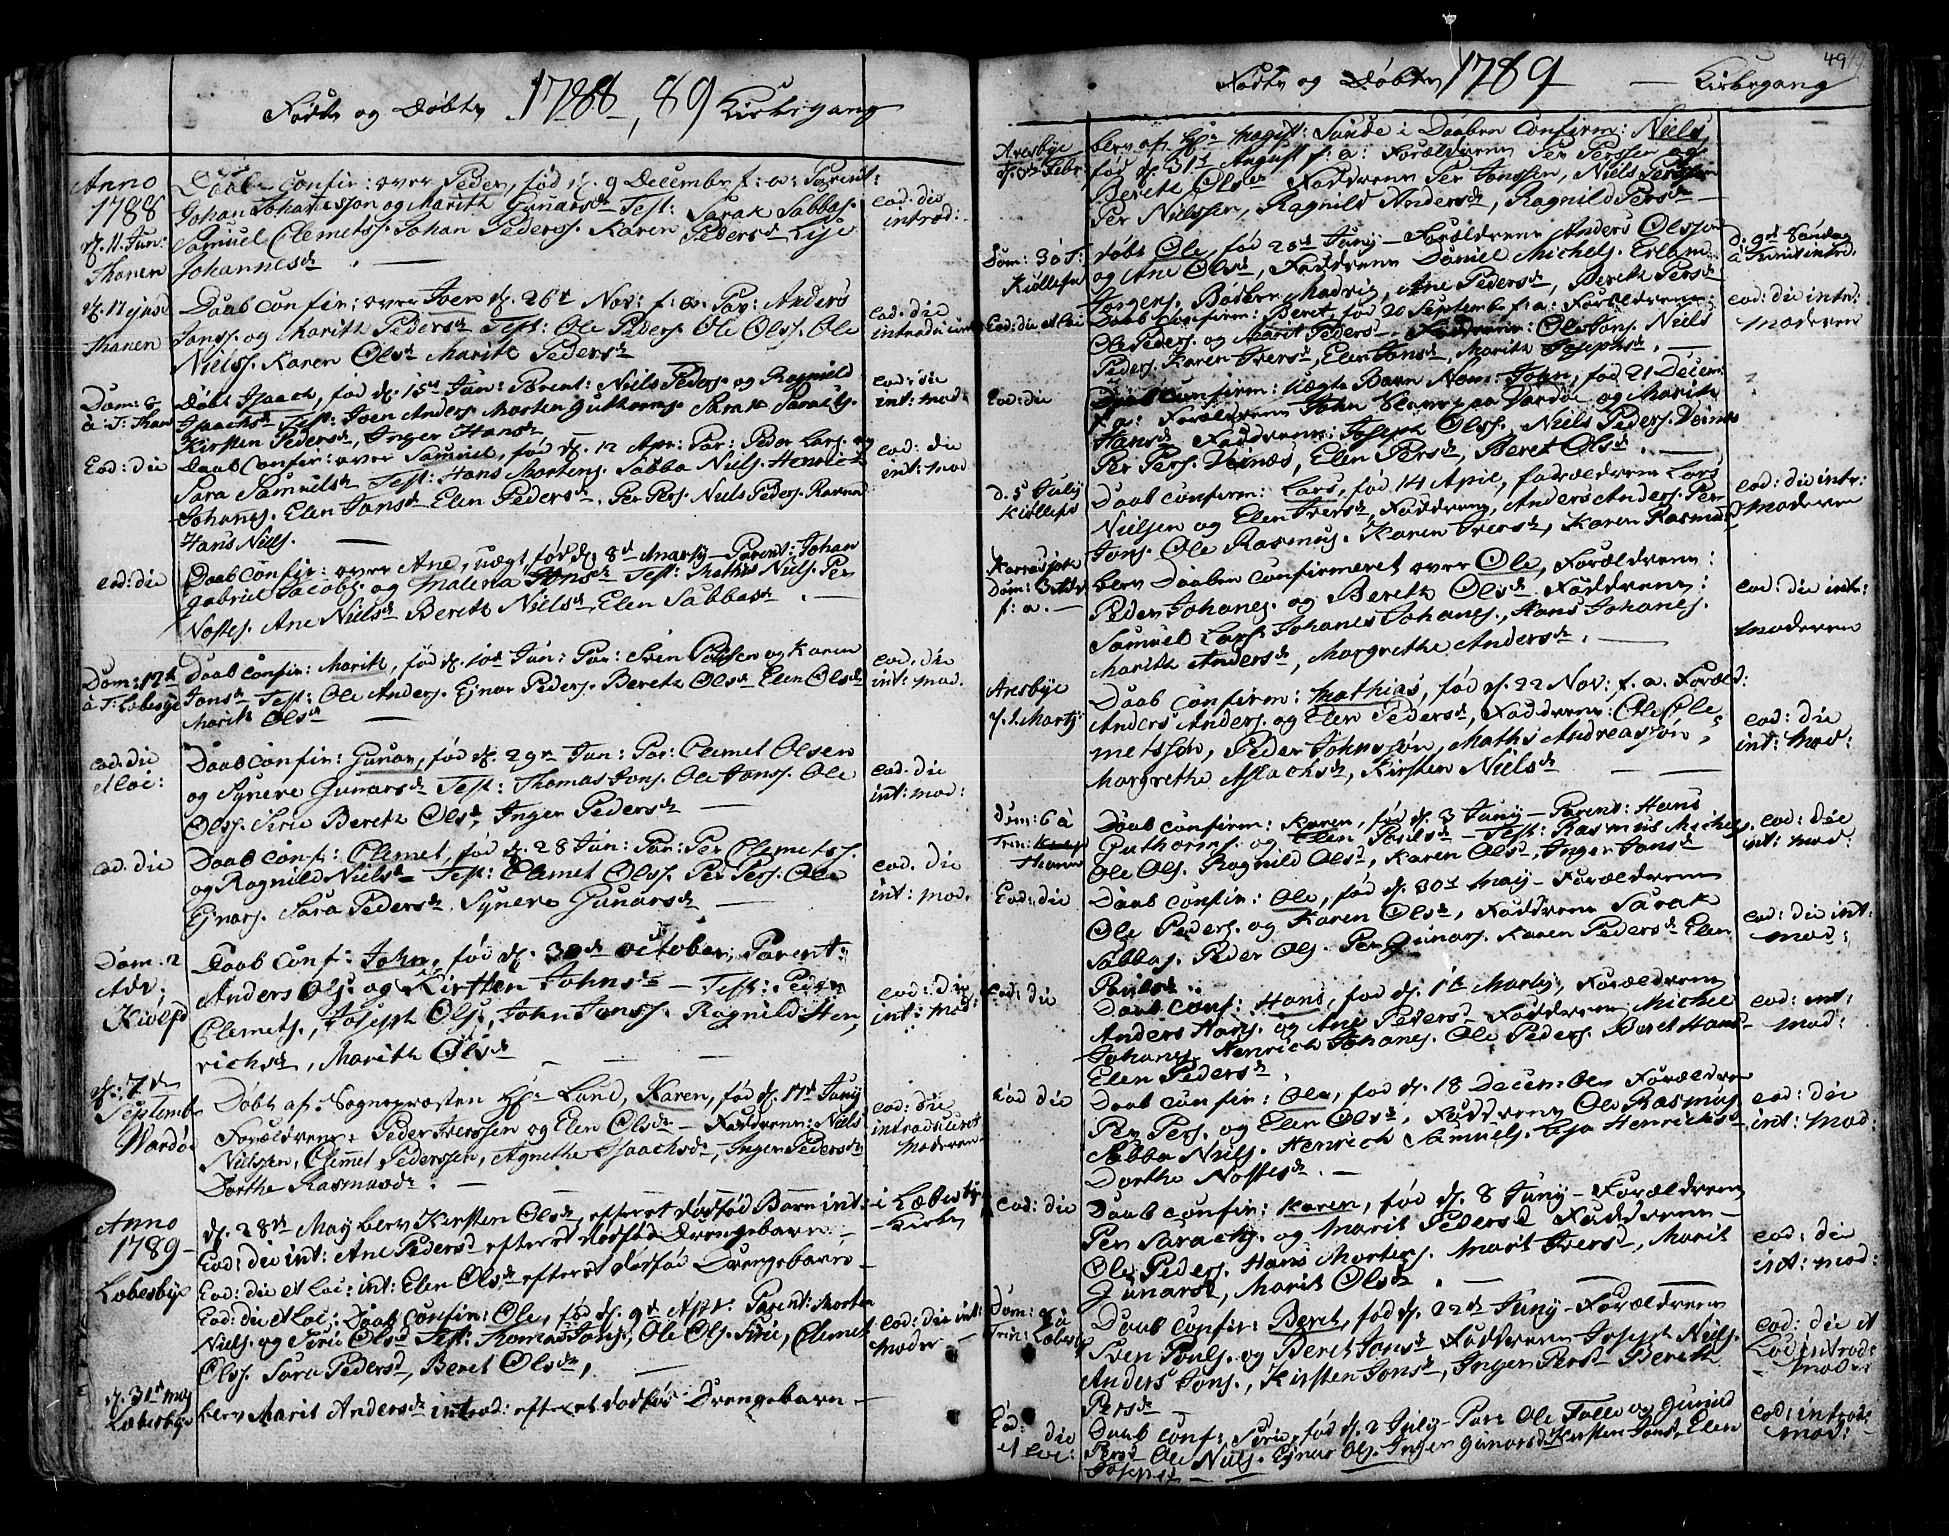 Fødte og Døbte 1788, 89 Kirkegang
Anno 1788
d. 11 Jun:
Thanen
Daab confir: over Peder, fød d. 9 Decembr f: a: Parent:
Johan Johannesson og Marith Gunarsdr Test: Sarak Sabbas.
Samuel Clemets. Johan Peders. Karen Pedersdr Lisje
Johannesdr
eod: die
introd:
Thanen
Daab confir: over Joen d. 26d Nov: f. a. Par: Anders
Jonss. og Marith Pedersdr Test: Ole Peders. Ole Ols. Ole
Nielss. Karen Olsdr Marith Pedersdr
eod: die
Dom: 8
a T: Than
Døbt Isaach, fød d. 15d Jun: Parent: Niels Peders. og Ragnild
Isaachsdr Test: Joen Anders. Morten Guthorms. Sarak
Kirsten Pedersdr, Inger Hansdr
eod: die
int: mod:
Eod: die
Daab confir: over Samuel, fød d. 12 Apr: Par: Peder Lars. og
Sara Samuelsdr Test: Hans Mortens. Sabba Niels. Henrich
Johanes. Elen Jonsdr Elen Pedersdr. Per Pers. Niels Peders.
Hans Niels.
eod: die
int: mod
eod: die
Daab confir: over Ane, uægt, fød d. 8d Marty Parent: Johan
Gabriel Jacobs. og Malena Jonsdr Test: Mathis Niels. Per
Nostes. Ane Nielsdr Bereth Nielsdr, Elen Sabbasdr
Dom: 17de
a T: Læbesbye
Daab confir: Marith, fød d. 10d Jun: Par: Sven Poulsen og Karen
Jonsdr Test: Ole Anders. Ejnar Peders. Bereth Olsdr Elen Olsdr
Marith Olsdr
eod. die
int: mod.
eod: die
et loi:
Daab confir: Gunar, fød d. 29r Jun: Par: Clemet Olsen
og Synere Gunarsdr Test: Thomas Jons. Ole Jonss. Ole
Olss. Sirie Bereth Olsdr, Inger Pedersdr
eod. die
int: mod:
eod. die
Daab conf: Clemet, fød d. 28 Jun: Par: Per Clemetss.
og Ragnild Nielsdr Test: Clemet Olss. Per Pers. Ole
Ejnars. Sara Pedersdr, Synere Gunarsdr
eod. die
int: mod.
Dom: 2
Adv:
Daab conf: John, fød d. 30de october, Parent:
Anders Ols. og Kirsten Johnsdr Test: Peder
Clemets., Joseph Ols., John Jonss. Ragnild Hen,
richsdr, Marith Olsdr
eod: die
int: mod:
d. 7de
Septembr
Wardøe
Døbt af Sognepræsten Hr Lund, Karen, fød d. 17d Juny
Forældrene: Peder Iverssen og Elen Olsdr Faddrene: Niels
Nielssen, Clemet Pederssen, Agnethe Isaachsdr, Inger Pedersdr
Dorthe Rasmusdr.
eod: die
introduceret
Moderen
Anno
1789
Læbesbye
d. 28de May blev Kirsten Olsdr, efter et dødfød Barn int: i Læbesbye Kirke
Eod: die int: Ane Pedersdr efter et dødfød Drengebarn
Eod: die et loi: int: Elen Olsdr efter et dødfød Drengebarn
Eod: die et loi: Daab confir: Ole, fød d. 9d Apr: Parent: Morten
Niels. og Sirie Olsdr Test: Thomas Jons., Ole Ols. Sirie, Clemet
Olss. Sara Pedersdr, Beret Olsdr,
eod: die int:
Moder
d. 31d May
Læbesbye
blev Marit Andersdr introd: efter et dødfød Drengebarn
Fødte og Døbte 1789 Kirkegang
49
blev af Hr Magist: Sunde i Daaben confirm: Niels,
fød d. 31t August f: a: Forældrene Per Perssen og
Bereth Olsdr Faddrene Per Jonssen, Niels
Per Nielssen, Ragnild Andersdr, Ragnild Persdr
Dom: 3 a T:
døbt Ole, fød 28d Juny Forældrene Anders Olssen
og Ane Olsdr, Faddrene Daniel Michels.
Ane Pedersdr, Bereth Persdr
Eod: die et loi
Daab confirm: Beret, fød 20 Septembr f: a: Forældrene:
Ole Peders. og Marit Pedersdr Faddrene: Ole Jons. Niels
Peders. Karen Iversdr, Elen Jonsdr, Marith Josephsdr.
eod: die intr:
Moderen
Eod: die
Daab confirm: Uægte Barn Nom: John, fød 21 Decem
f. a: Forældrene John paa Vardøe og Marith
Hansdr Faddrene: Joseph Olss., Niels Peders.
Per Pers. Veinæs, Elen Persdr, Beret Olsdr.
d. 5 July
Daab confirm: Lars, fød 14 April, forældrene Lars
Nielsen og Elen Iversdr, Faddrene, Anders Anders. Per
Jons. Ole Rasmus. Karen Iversdr, Karen Rasmusdr
eod: die intr:
Moderen
f: a.
blev Daaben confirmeret over Ole, Forældrene:
Peder Johanes. og Bereth Olsdr Faddrene:
Samuel Lars. Johanes Johanes., Hans Johanes.
Marith Andersdr, Margrethe Andersdr.
eod: die intr:
Moderen
Daab confirm: Mathias, fød d. 22 Nov: f. a. Foræld:
Anders Anders. og Elen Pedersdr, Faddrene: Ole Cle,
metssøn, Peder Johnssøn, Maths Andreassøn,
Margrethe Aslachsdr, Kirsten Nielsdr
eod: die
int: mod:
Dom: 6 a
Trin:
Thanen
Daab confirm: Karen, fød d. 3 Juny Parent: Hans
Guthorms. og Elen Poulsdr Test: Rasmus Michels.
Ole Ols. Ragnild Olsdr, Karen Olsdr, Inger Jonsdr
eod: die
int: mod:
Eod: die
Daab confir: Ole, fød d. 30d May Forældrene
Ole Peders. og Karen Olsdr, Faddrene Sarak
Sabbas. Peder Ols. Per Gunars. Karen Pedersdr Elen
Poulsdr
eod: die int:
mod:
eod: die
Daab conf: Hans, fød d. 1te Marty, Forældrene
Anders Hans. og Ane Pedersdr Faddrene Michel
Johanes. Henrich Johanes. Ole Peders. Beret Hansdr
Elen Pedersdr.
eod: int:
mod:
eod die
Daab confir: Ole, fød d. 18 December Forældrene
Per Pers. og Elen Olsdr, Faddrene Ole Rasmus.
Sabba Niels. Henrich Samuels. Lisa Henrichsdr
Dorthe Nostesdr.
eod: die
int: mod:
eod: die
Daab confir: Karen, fød d. 8 Juny Forældrene
Per Sarachs. og Marit Pedersdr Faddrene
Ole Peders. Hans Mortens. Marit Iversdr, Marit
Gunarsdr, Marit Olsdr.
eod: die
int: mod:
Trin: Læbesb
Daab confir: Beret, fød d. 22d Juny Forældrene
Sven Pouls. og Beret Jonsdr Faddrene Joseph Niels.
Anders Jons., Kirsten Jonsdr, Inger Persdr Bereth
Persdr
eod: die et
Loi introd:
Moder
Eod: die
et loi:
Daab conf: Sirie, fød d. 2 July Par: Ole Folle og Gunild
Persdr Ole Niels. Ejnar Ols. Inger Gunarsdr Kirsten Jonsdr, Elen
Josephsdr
eod: introd:
mod: